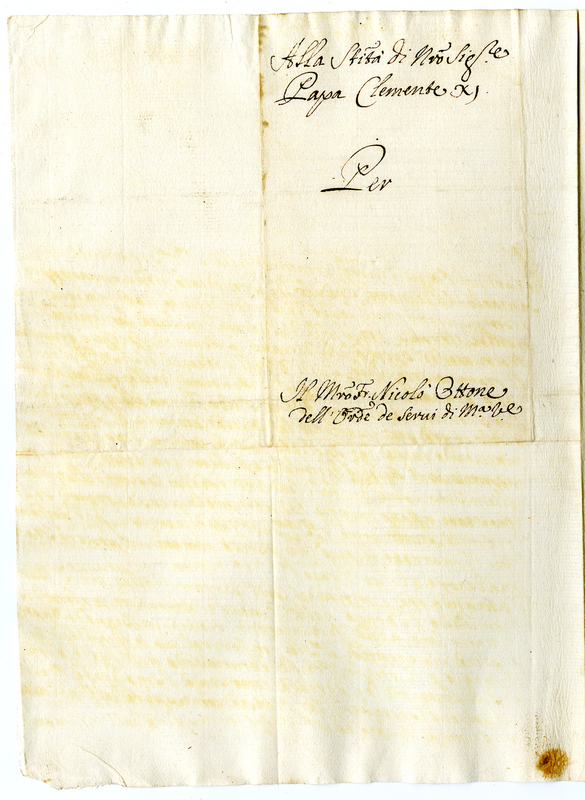 Alla Stità di Nrõ Sigre
Papa Clemente XI
Per
Il Mrõ Fr. Nicolò Ottone
dell' Ordẽ de Serui di Ma Ve